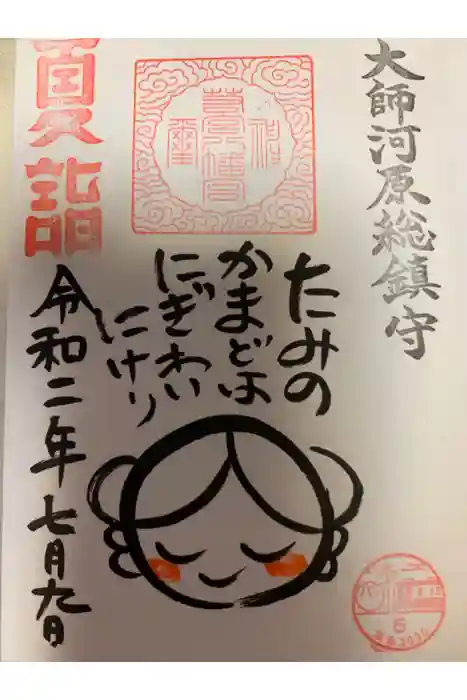 大師河原総鎮守
たみの
かまどは
にぎわい
にけり
夏詣
令和二年七月九日